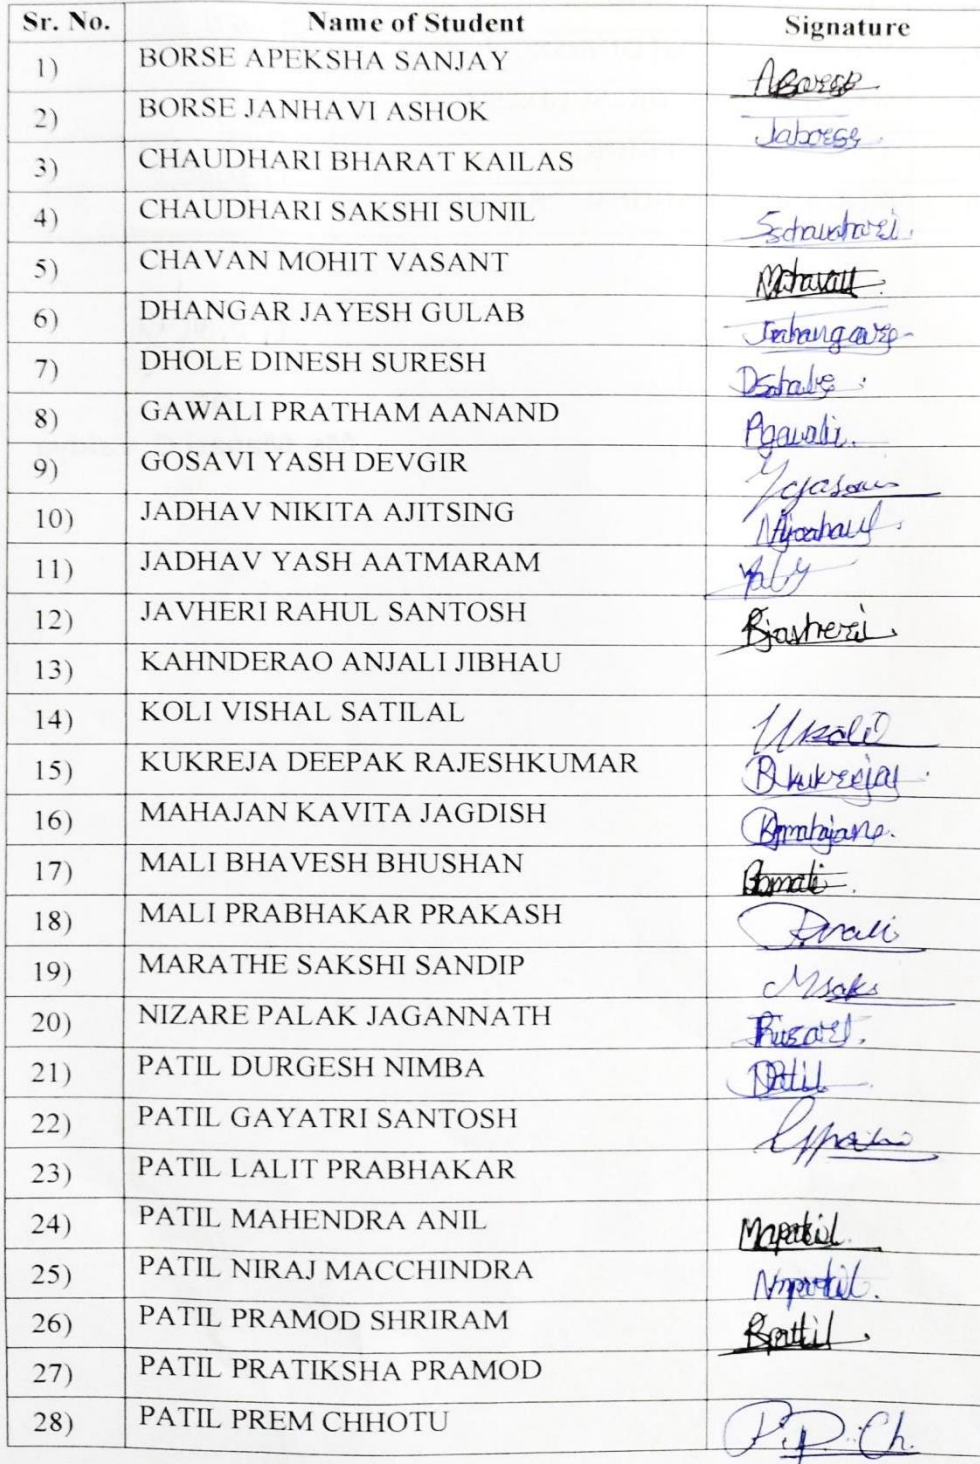 Sr. No. Name of Student Signature
1) BORSE APEKSHA SANJAY ABorse
2) BORSE JANHAVI ASHOK Jaborse
3) CHAUDHARI BHARAT KAILAS
4) CHAUDHARI SAKSHI SUNIL
5) CHAVAN MOHIT VASANT
6) DHANGAR JAYESH GULAB
7) DHOLE DINESH SURESH
8) GAWALI PRATHAM AANAND Pgawali.
9) GOSAVI YASH DEVGIR
10) JADHAV NIKITA AJITSING
11) JADHAV YASH AATMARAM
12) JAVHERI RAHUL SANTOSH
13) KAHNDERAO ANJALI JIBHAU
14) KOLI VISHAL SATILAL
15) KUKREJA DEEPAK RAJESHKUMAR
16) MAHAJAN KAVITA JAGDISH
17) MALI BHAVESH BHUSHAN
18) MALI PRABHAKAR PRAKASH
19) MARATHE SAKSHI SANDIP Msaks
20) NIZARE PALAK JAGANNATH
21) PATIL DURGESH NIMBA
22) PATIL GAYATRI SANTOSH
23) PATIL LALIT PRABHAKAR
24) PATIL MAHENDRA ANIL Mapatil
25) PATIL NIRAJ MACCHINDRA Nmpatil.
26) PATIL PRAMOD SHRIRAM
27) PATIL PRATIKSHA PRAMOD
28) PATIL PREM CHHOTU P.P.Ch.